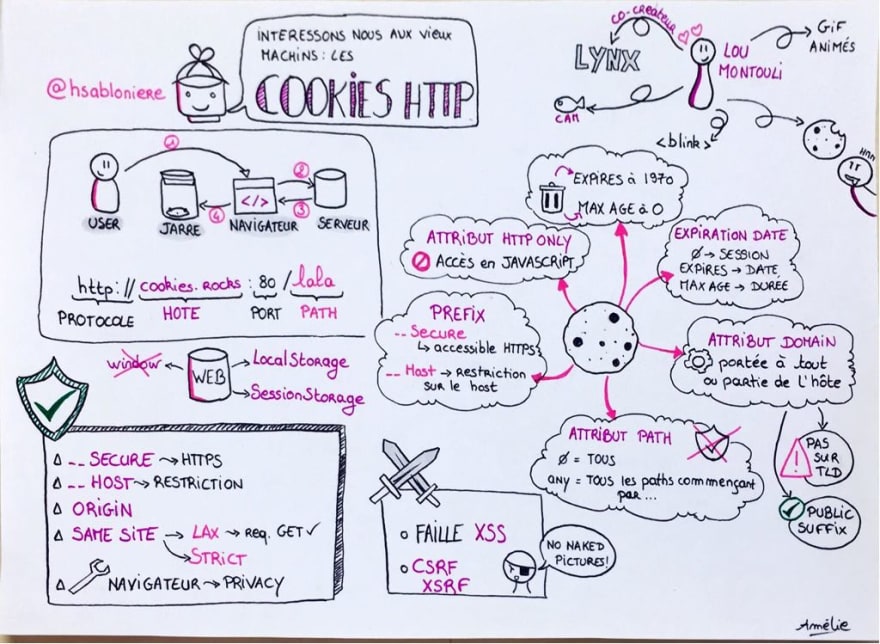 INTERESSONS NOUS AUX VIEUX
MACHINS : LES
COOKIES HTTP
@hsabloniere
CO-CREATEUR
LYNX
LOU
MONTOULI
GIF
ANIMÉS
CAM
<blink>
HMM
1
2
3
4
</>
USER
JARRE
NAVIGATEUR
SERVEUR
http:// cookies.rocks : 80 / lala
PROTOCOLE HOTE PORT PATH
EXPIRES à 1970
MAX AGE à 0
ATTRIBUT HTTP ONLY
ACCÈS en JAVASCRIPT
EXPIRATION DATE
Ø → SESSION
EXPIRES → DATE
MAX AGE → DUREE
PREFIX
-- Secure
↳ accessible HTTPS
-- Host → RESTRICTION
SUR le host
ATTRIBUT DOMAIN
portée à tout
ou partie de l'hôte
PAS
SUR
TLD
PUBLIC
SUFFIX
ATTRIBUT PATH
Ø = TOUS
any = TOUS les paths commençant
par ...
window ← WEB → LocalStorage
→ SessionStorage
-- SECURE → HTTPS
-- HOST → RESTRICTION
ORIGIN
SAME SITE → LAX → req. GET ✓
→ STRICT
NAVIGATEUR → PRIVACY
FAILLE XSS
CSRF
XSRF
NO NAKED
PICTURES!
Amélie